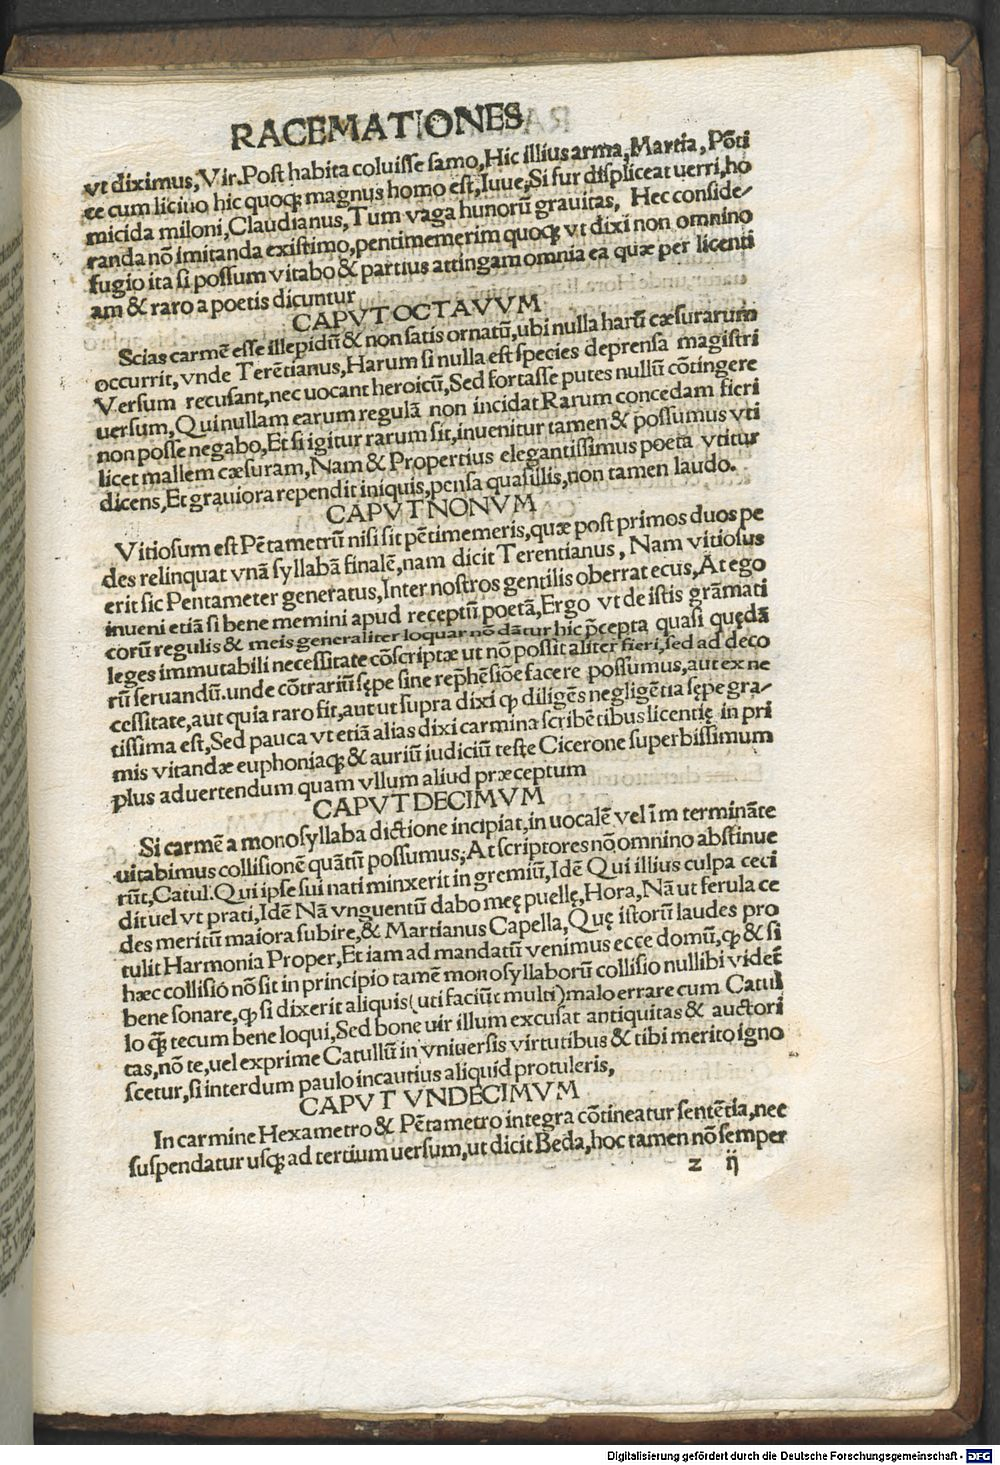 RACEMATIONES
vt diximus, Vir. Post habita coluisse samo, Hic illius arma, Martia, Põti
ce cum liciuo hic quoqꝫ magnus homo est, Iuue, Si fur displiceat uerri, ho
micida miloni, Claudianus, Tum vaga hunorũ grauitas, Hec conside-
randa nõ imitanda existimo, pentimemerim quoqꝫ vt dixi non omnino
fugio ita si possum vitabo & partius attingam omnia ea quæ per licenti
am & raro a poetis dicuntur
CAPVT OCTAVVM
Scias carmẽ esse illepidũ & non satis ornatũ, ubi nulla harũ cæsurarum
occurrit, vnde Terẽtianus, Harum si nulla est species deprensa magistri
Versum recusant, nec uocant heroicũ, Sed fortasse putes nullũ cõtingere
uersum, Qui nullam earum regulã non incidat Rarum concedam fieri
non posse negabo, Et si igitur rarum sit, inuenitur tamen & possumus vti
licet mallem cæsuram, Nam & Propertius elegantissimus poeta vtitur
dicens, Et grauiora rependit iniquis, pensa quasillis, non tamen laudo.
CAPVT NONVM
Vitiosum est Pẽtametrũ nisi sit pẽtimemeris, quæ post primos duos pe
des relinquat vnã syllabã finalẽ, nam dicit Terentianus, Nam vitiosus
erit sic Pentameter generatus, Inter nostros gentilis oberrat ecus, At ego
inueni etiã si bene memini apud receptũ poetã, Ergo vt de istis grãmati
corũ regulis & meis generaliter loquar nõ dãtur hic p̃cepta quasi quędã
leges immutabili necessitate cõscriptæ ut nõ possit aliter fieri, sed ad deco
rũ seruandũ. unde cõtrariũ sępe sine rep̃hẽsiõe facere possumus, aut ex ne
cessitate, aut quia raro fit, aut ut supra dixi ꝙ diligẽs negligẽtia sępe gra-
tissima est, Sed pauca vt etiã alias dixi carmina scribẽtibus licentię in pri
mis vitandæ euphoniaqꝫ & auriũ iudiciũ teste Cicerone superbissimum
plus aduertendum quam vllum aliud præceptum
CAPVT DECIMVM
Si carmẽ a monosyllaba dictione incipiat, in uocalẽ vel ĩm terminãte
uitabimus collisionẽ quãtũ possumus, At scriptores nõ omnino abstinue
rũt, Catul. Qui ipse sui nati minxerit in gremiũ, Idẽ Qui illius culpa ceci
dit uel vt prati, Idẽ Nã vnguentũ dabo meę puellę, Hora, Nã ut ferula ce
des meritũ maiora subire, & Martianus Capella, Quę istorũ laudes pro
tulit Harmonia Proper, Et iam ad mandatũ venimus ecce domũ, ꝙ & si
hæc collisió nõ sit in principio tamẽ monosyllaborũ collisio nullibi videt̃
bene sonare, ꝙ si dixerit aliquis (uti faciũt multi) malo errare cum Catul
lo q̃ꝫ tecum bene loqui, Sed bone uir illum excusat antiquitas & auctori
tas, nõ te, vel exprime Catullũ in vniuersis virtutibus & tibi merito igno
scetur, si interdum paulo incautius aliquid protuleris,
CAPVT VNDECIMVM
In carmine Hexametro & Pẽtametro integra cõtineatur sentẽtia, nec
suspendatur usqꝫ ad tertium uersum, ut dicit Beda, hoc tamen nõ semper
z ij
Digitalisierung gefördert durch die Deutsche Forschungsgemeinschaft - DFG